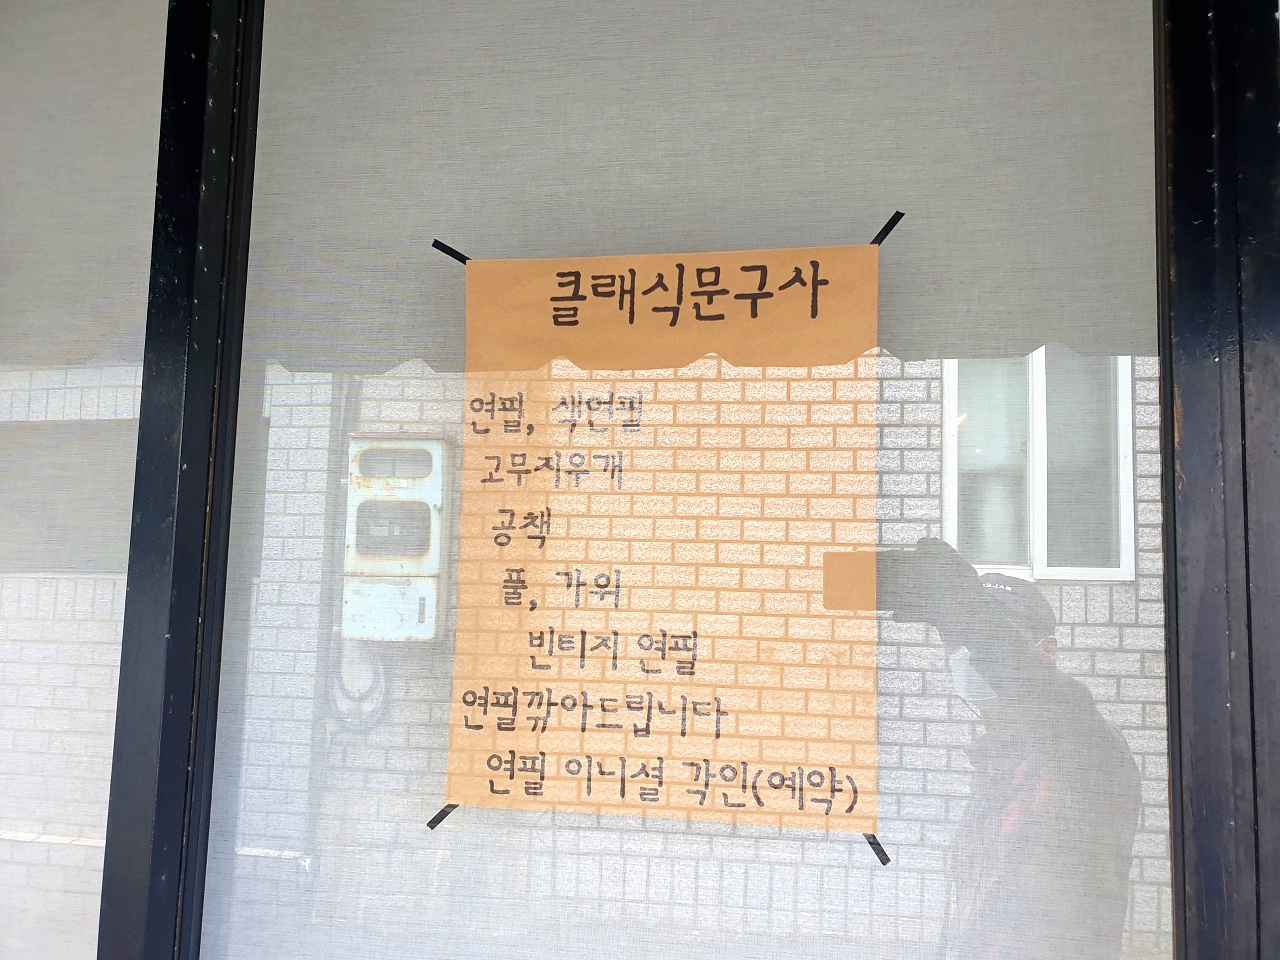 클래식문구사
연필, 색연필
고무지우개
공책
풀, 가위
빈티지 연필
연필깎아드립니다
연필 이니셜 각인(예약)